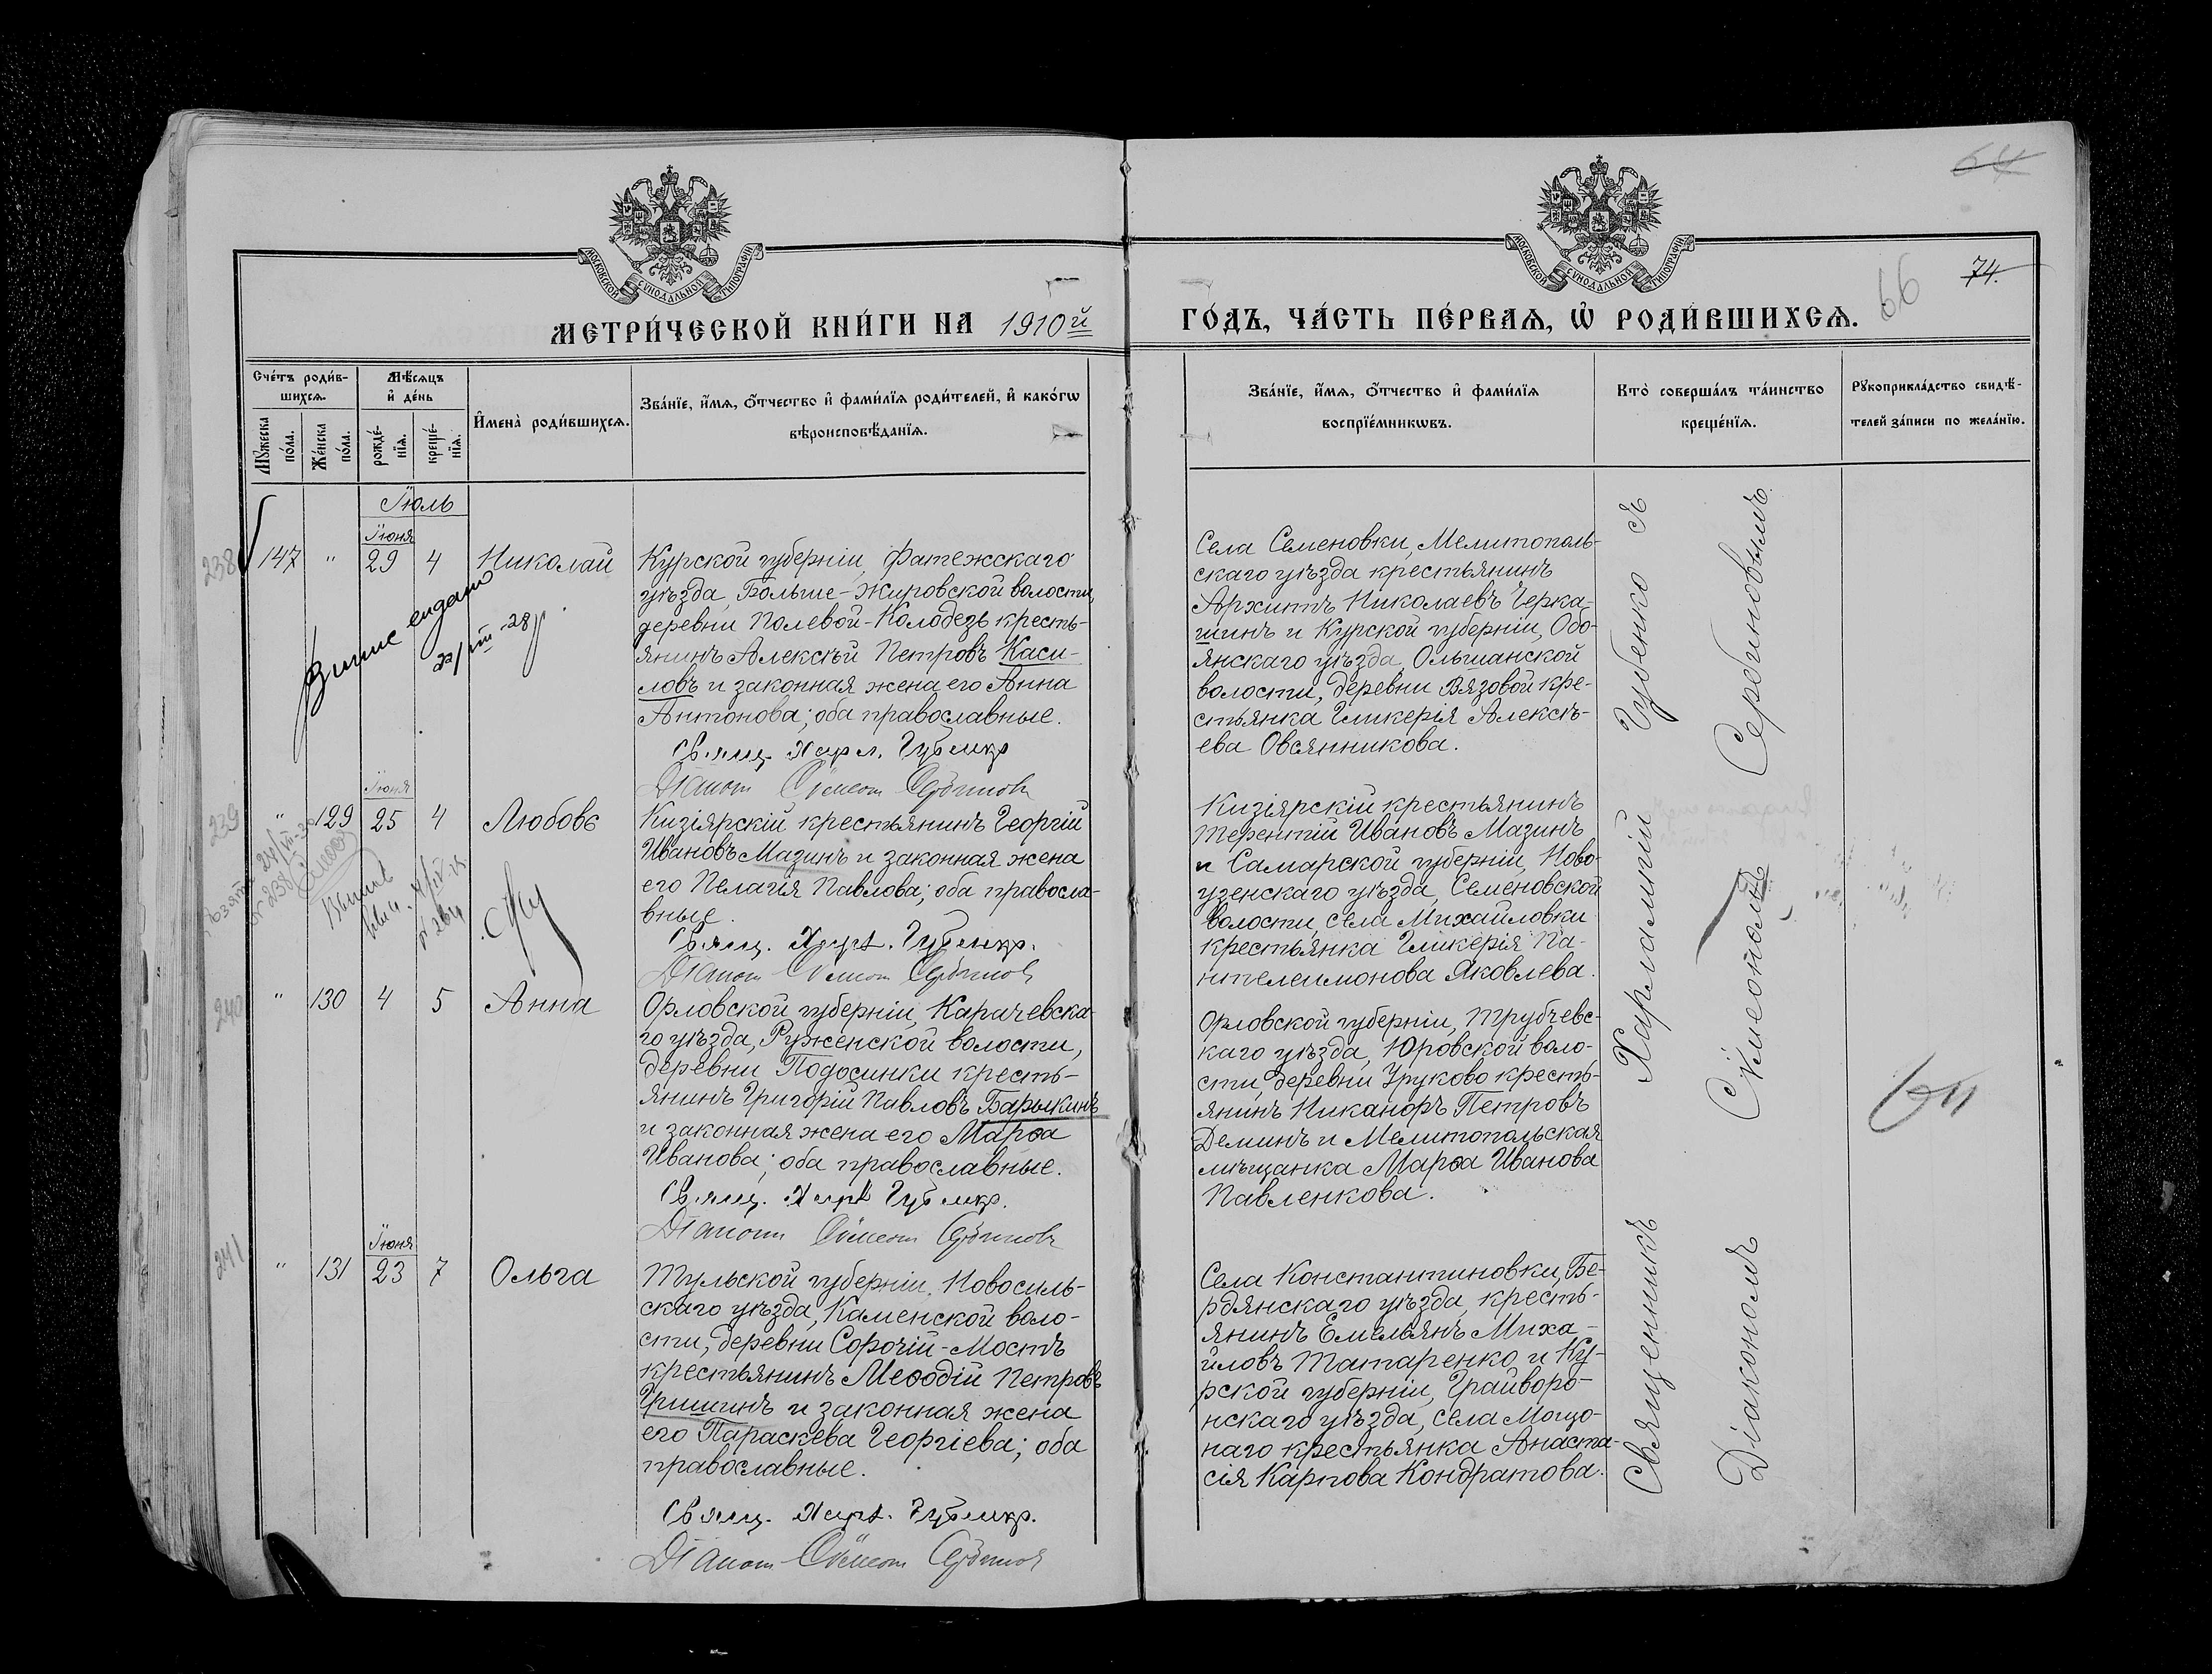 64
МОСКОВСКОЙ СУНОДАЛЬНОЙ ТИПОГРАФІИ
МОСКОВСКОЙ СУНОДАЛЬНОЙ ТИПОГРАФІИ
66 74.
МЕТРИ́ЧЕСКОЙ КНИ́ГИ НА 1910й
ГО́ДЪ, ЧА́СТЬ ПЕ́РВАѦ, Ѡ РОДИ́ВШИХСѦ.
Сче́тъ роди́в-
шихсѧ.
Мꙋ́жеска по́ла.
Же́нска по́ла.
Мѣ́сѧцъ
и҆ де́нь
рожде́-
нїѧ.
креще́-
нїѧ.
И҆мена̀ роди́вшихсѧ.
Зва́нїе, и҆́мѧ, ѻ҆́тчество и҆ фами́лїѧ роди́телей, и҆ како́гѡ
вѣроисповѣ́данїѧ.
Зва́нїе, и҆́мѧ, ѻ҆́тчество и҆ фами́лїѧ
воспрїе́мникѡвъ.
Кто̀ соверша́лъ та́инство
креще́нїѧ.
Рꙋкоприкла́дство свидѣ́-
телей за́писи по жела́нїю.
Іюль
Іюня
238 147 " 29 4 Николай
Курской губерніи, Фатежскаго
уѣзда, Больше-Жировской волости,
деревни Полевой-Колодезь кресть-
янинъ Алексѣй Петровъ Каси-
ловъ и законная жена его Анна
Антонова; оба православные.
Свящ. Харл. Губенко
Діаконъ Сѷмеонъ Сербиновъ
Села Семеновки, Мелитополь-
скаго уѣзда крестьянинъ
Архиппъ Николаевъ Черка-
шинъ и Курской губерніи, Обо-
янскаго уѣзда, Ольшанской
волости, деревни Вязовой кре-
стьянка Гликерія Алексѣ-
ева Овсянникова.
выдано
22/VIII-28
Іюня
239 " 129 25 4 Любовь
Кизіярскій крестьянинъ Георгій
Ивановъ Мазинъ и законная жена
его Пелагія Павлова; оба правосла-
вные.
Свящ. Харл. Губенко.
Діаконъ Сѷмеонъ Сербиновъ
Кизіярскій крестьянинъ
Терентій Ивановъ Мазинъ
и Самарской губерніи, Ново-
узенскаго уѣзда, Семеновской
волости, села Михайловки
крестьянка Гликерія Па-
нтелеимонова Яковлева.
240 " 130 4 5 Анна
Орловской губерніи, Карачевска-
го уѣзда, Руженской волости,
деревни Подосинки кресть-
янинъ Григорій Павловъ Барыкинъ
и законная жена его Марѳа
Иванова; оба православные.
Свящ. Харл. Губенко.
Діаконъ Сѷмеонъ Сербиновъ
Орловской губерніи, Трубчевс-
каго уѣзда, Юровской воло-
сти, деревни Уруково кресть-
янинъ Никаноръ Петровъ
Деминъ и Мелитопольская
мѣщанка Марѳа Иванова
Павленкова.
Іюня
241 " 131 23 7 Ольга
Тульской губерніи, Новосиль-
скаго уѣзда, Каменской воло-
сти, деревни Сорочій-Мостъ
крестьянинъ Меѳодій Петровъ
Гришинъ и законная жена
его Параскева Георгіева; оба
православные.
Свящ. Харл. Губенко.
Діаконъ Сѷмеонъ Сербиновъ
Села Константиновки, Бе-
рдянскаго уѣзда, кресть-
янинъ Емельянъ Миха-
йловъ Татаренко и Ку-
рской губерніи, Грайворо-
нскаго уѣзда, села Мощо-
наго крестьянка Анаста-
сія Карпова Кондратова.
Священникъ Харлампій Губенко съ
Діакономъ Сѷмеономъ Сербиновымъ.